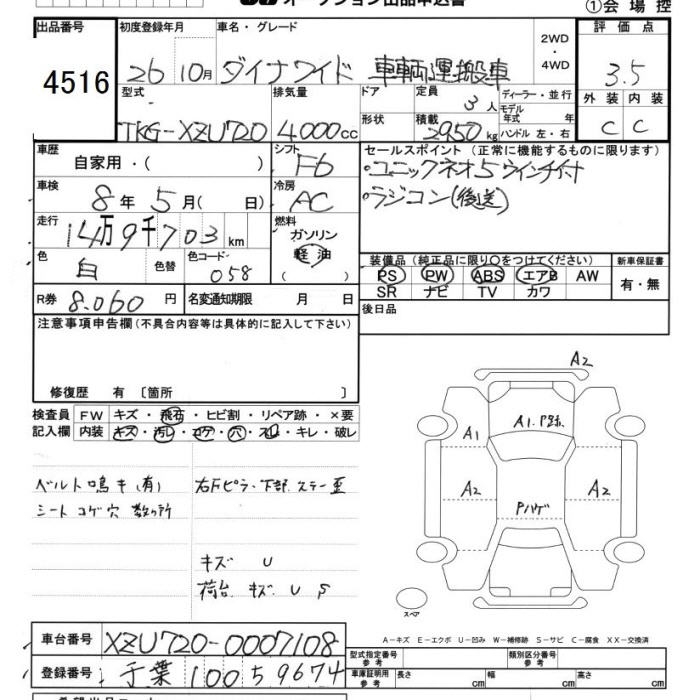 オークション出品申込書
①会場控
出品番号
4516
初度登録年月
26 10月
車名・グレード
ダイナワイド 車輌運搬車
2WD
・
4WD
評価点
3.5
型式
TKG-XZU720
排気量
4.000cc
ドア
形状
定員
3人
積載
2950kg
ディーラー・並行
モデル
年式 年
ハンドル 左・右
外装 内装
C C
車歴
自家用・( )
シフト
F6
車検
8年 5月( 日)
冷房
AC
走行
14万9千703km
燃料
ガソリン
軽油
色
白
色替
色コード
058
R券 8.060円
名変通知期限 月 日
セールスポイント (正常に機能するものに限ります)
・ユニックネオ5ウインチ付
・ラジコン(後送)
装備品 (純正品に限り○をつけてください)
PS PW ABS エアB AW
SR ナビ TV カワ
新車保証書
有・無
後日品
注意事項申告欄(不具合内容等は具体的に記入して下さい)
修復歴 有〔箇所 〕
検査員
記入欄
FW キズ・飛石・ヒビ割・リペア跡・×要
内装 キズ・汚れ・コゲ・穴・スレ・キレ・破レ
ベルト鳴キ(有)
シート コゲ穴 数ヶ所
右Fピラー下部 ステー歪
キズ U
荷台 キズ U S
A2
A1.P跡.
A1
A2
Pハゲ
A2
スペア
A-キズ E-エクボ U-凹み W-補修跡 S-サビ C-腐食 XX-交換済
車台番号 XZU720-0007108
登録番号 千葉 100 う 9674
型式指定番号
参考
類別区分番号
参考
車庫証明用
参考
長さ cm
幅 cm
高さ cm